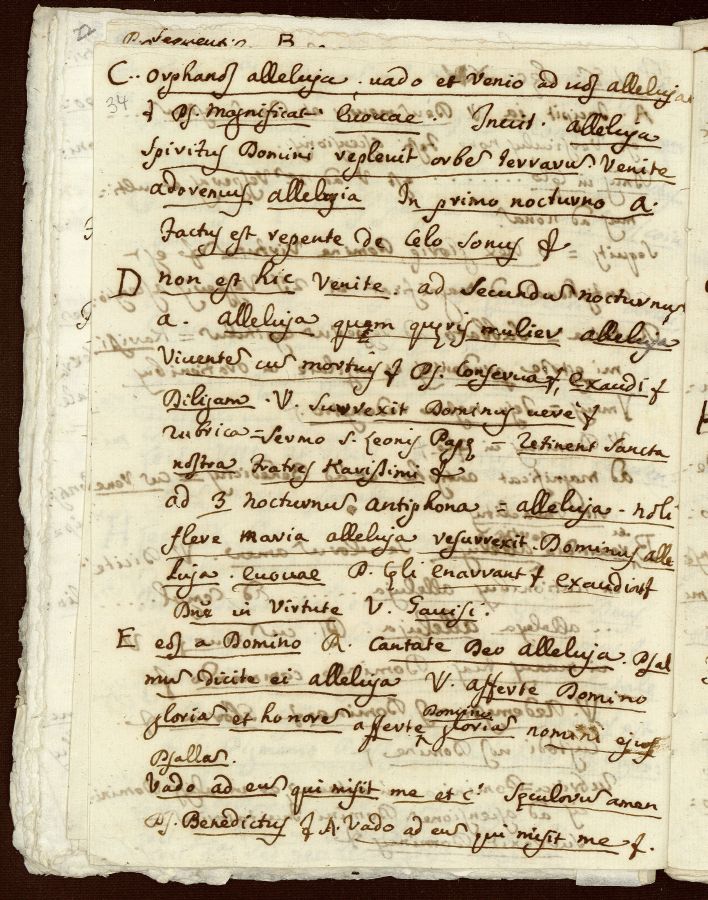 22
C. orphanos alleluja. uado et venio ad uos alleluja
34
Ps. magnificat Euouae Inuit. alleluja
Spiritus Domini repleuit orbem terrarum. Venite
adoremus alleluia In primo nocturno a.
Factus est repente de Celo sonus
D non est hic Venite. ad Secundum nocturnum
a. alleluja quem queris mulier alleluja
Viuentem cum mortuis Ps. Conserua, Exaudi
Diligam. V. surrexit Dominus uere
rubrica = Sermo S. Leonis Pape = retinent sancta
nostra Fratres Karissimi
ad 3 nocturnum antiphona = alleluja. noli
flere maria alleluja resurrexit. Dominus alle
luja. euouae P. Celi enarrant exaudiat
Dne in Virtute V. Gauisi.
E eos a Domino R. Cantate Deo alleluja. Psal
mum dicite ei alleluja V. afferte Domino
gloriam et honorem afferte Domino gloriam nomini ejus
Psallam.
Vado ad eum qui misit me et c. Seculorum amen
Ps. Benedictus A. Vado ad eum qui misit me